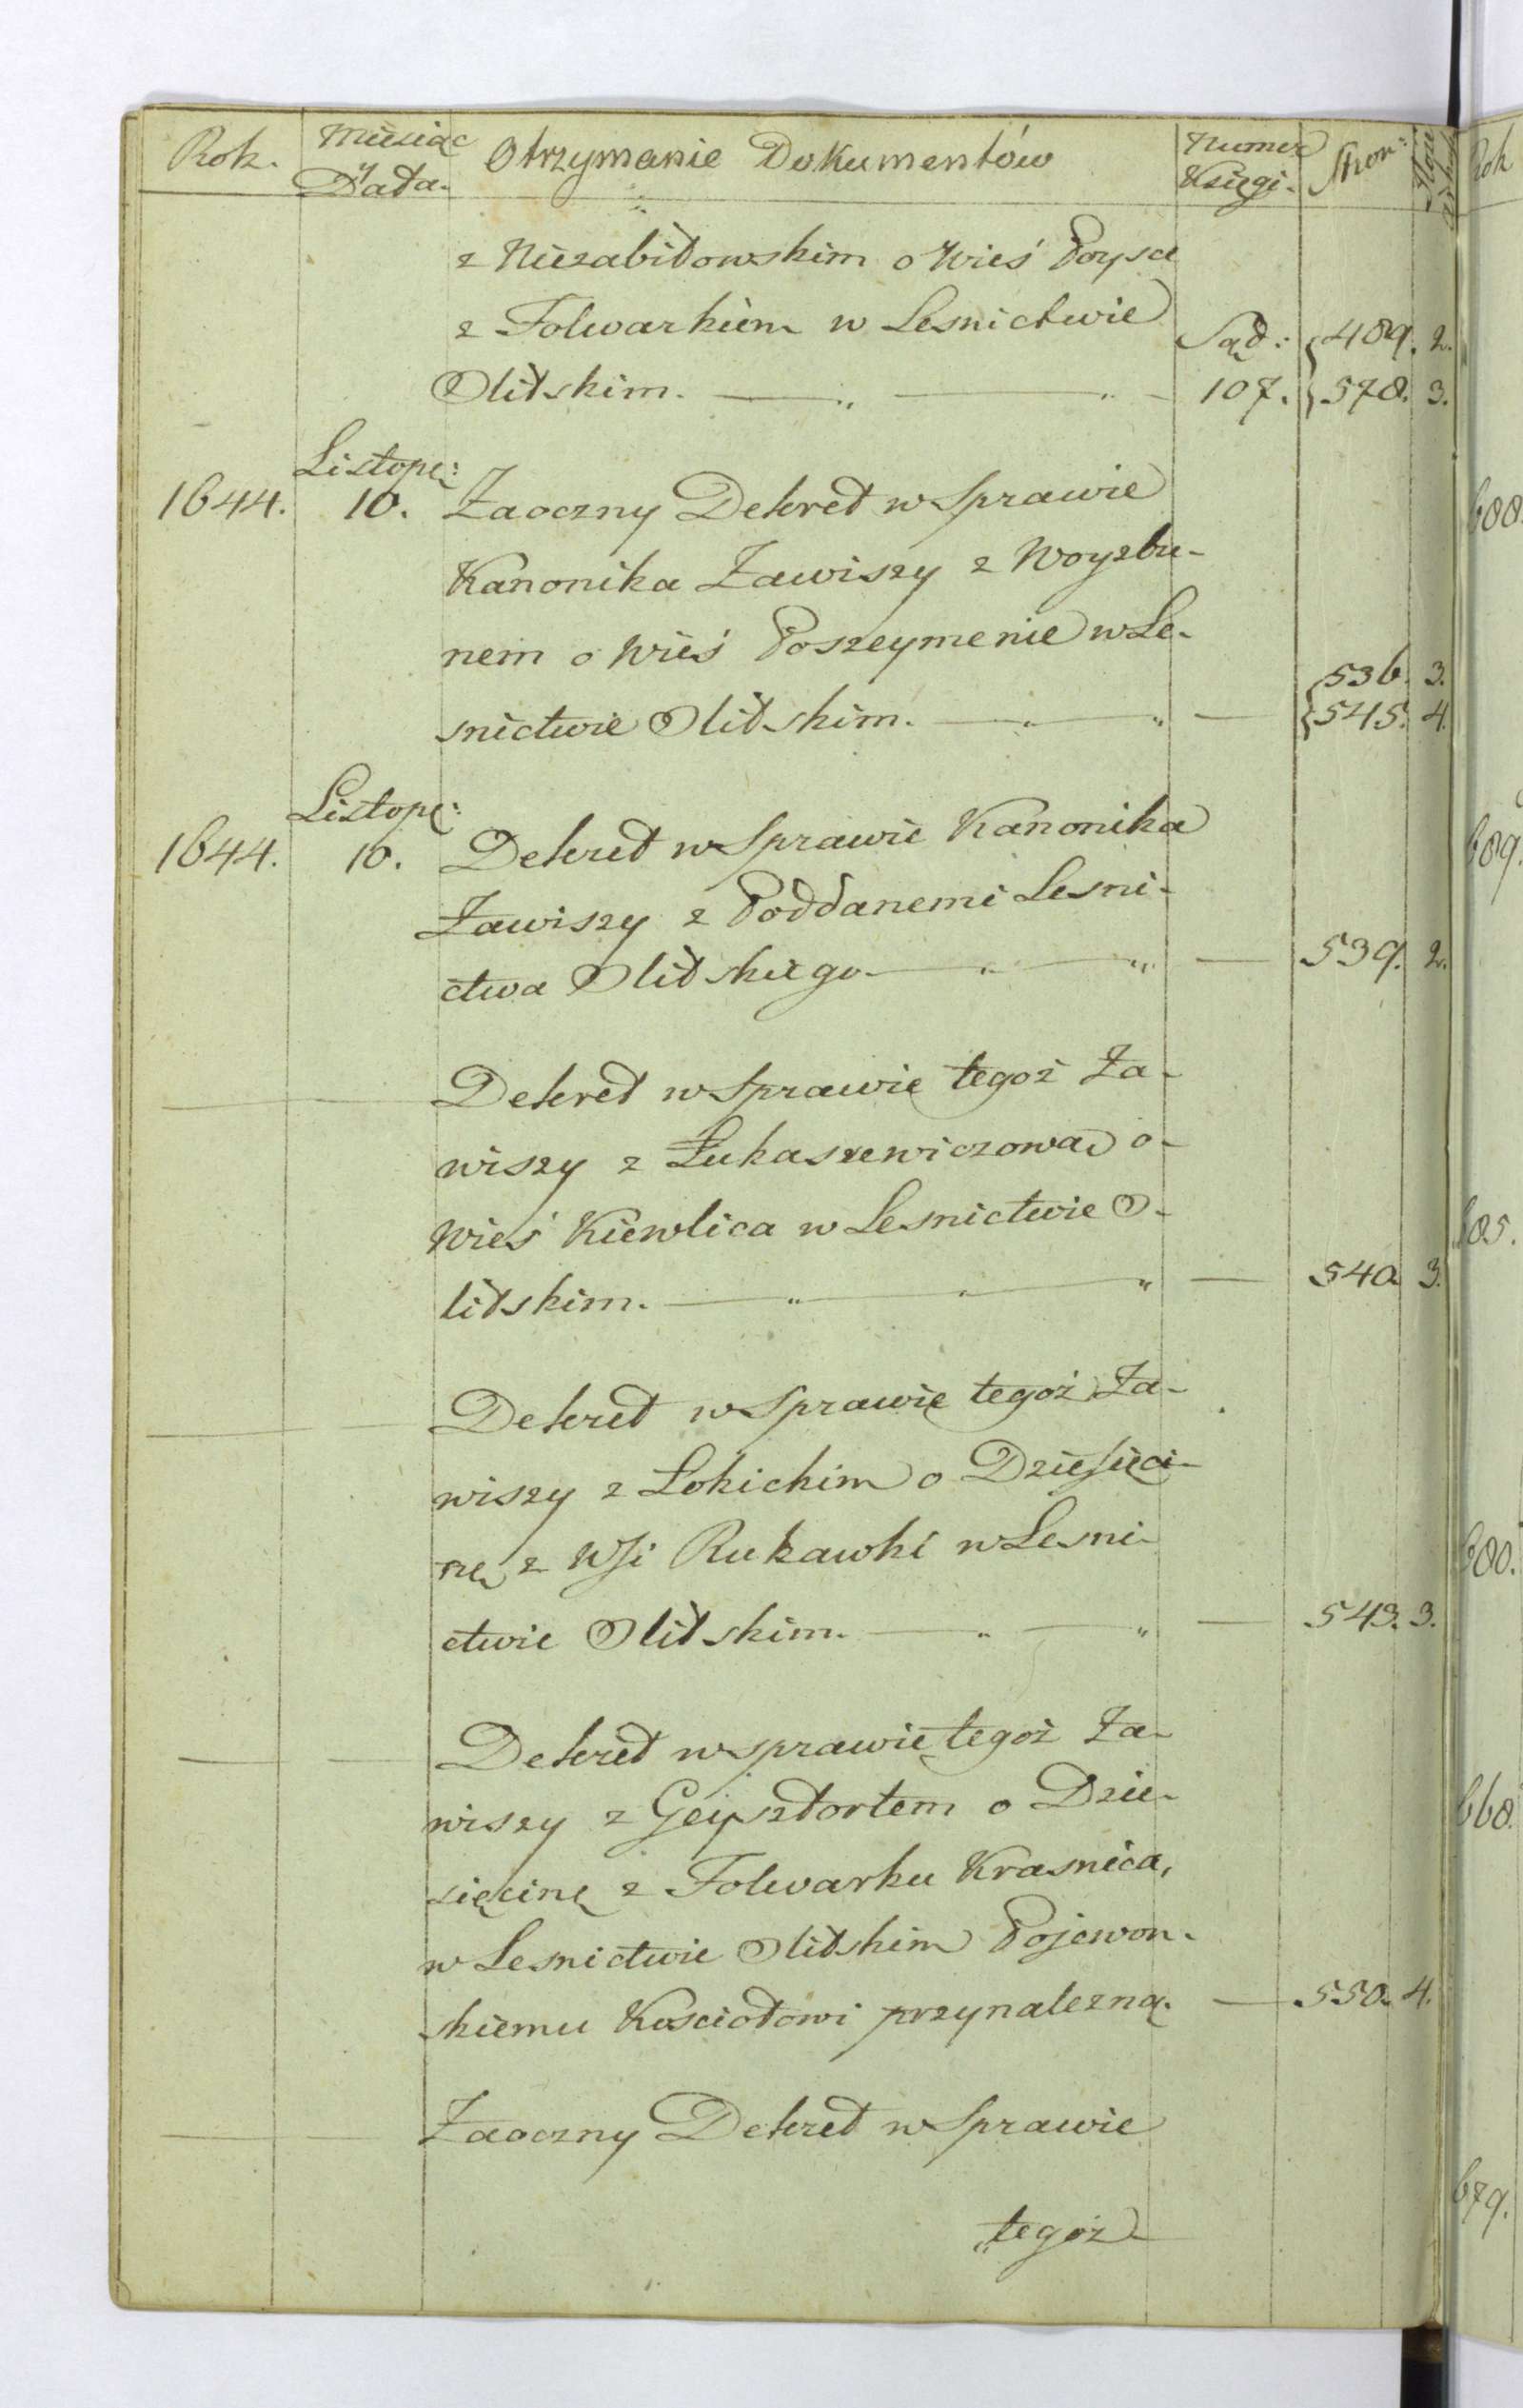 Rok. Miesiąc Otrzymanie Dokumentów Numer Stron:
y Data. Księgi.
z Niezabitowskim o Wieś Poysce
z Folwarkiem w Lesnictwie Sąd: 489. 2.
Olitskim. 107. 578. 3.
Listopa:
1644. 10. Zaoczny Dekret w Sprawie
Kanonika Zawiszy z Woyzbu-
nem o Wieś Poszeymenie w Le-
536. 3.
snictwie Olitskim. — 545. 4.
Listopa:
1644. 10. Dekret w Sprawie Kanonika
Zawiszy z Poddanemi Lesni-
ctwa Olitskiego — 539. 2.
Dekret w Sprawie tegoż Za-
wiszy z Łukaszewiczową o-
Wieś Kiewlica w Lesnictwie O-
litskim. — 540. 3.
Dekret w Sprawie tegoż Za-
wiszy z Lokickim o Dziesięci-
nę z Wsi Rukawki w Lesni-
ctwie Olitskim. — 543. 3.
Dekret w sprawie tegoż Za-
wiszy z Geysztortem o Dzie-
sięcinę z Folwarku Krasnica,
w Lesnictwie Olitskim Pojewon-
skiemu Kościołowi przynalezną. — 550. 4.
Zaoczny Dekret w Sprawie
tegoż